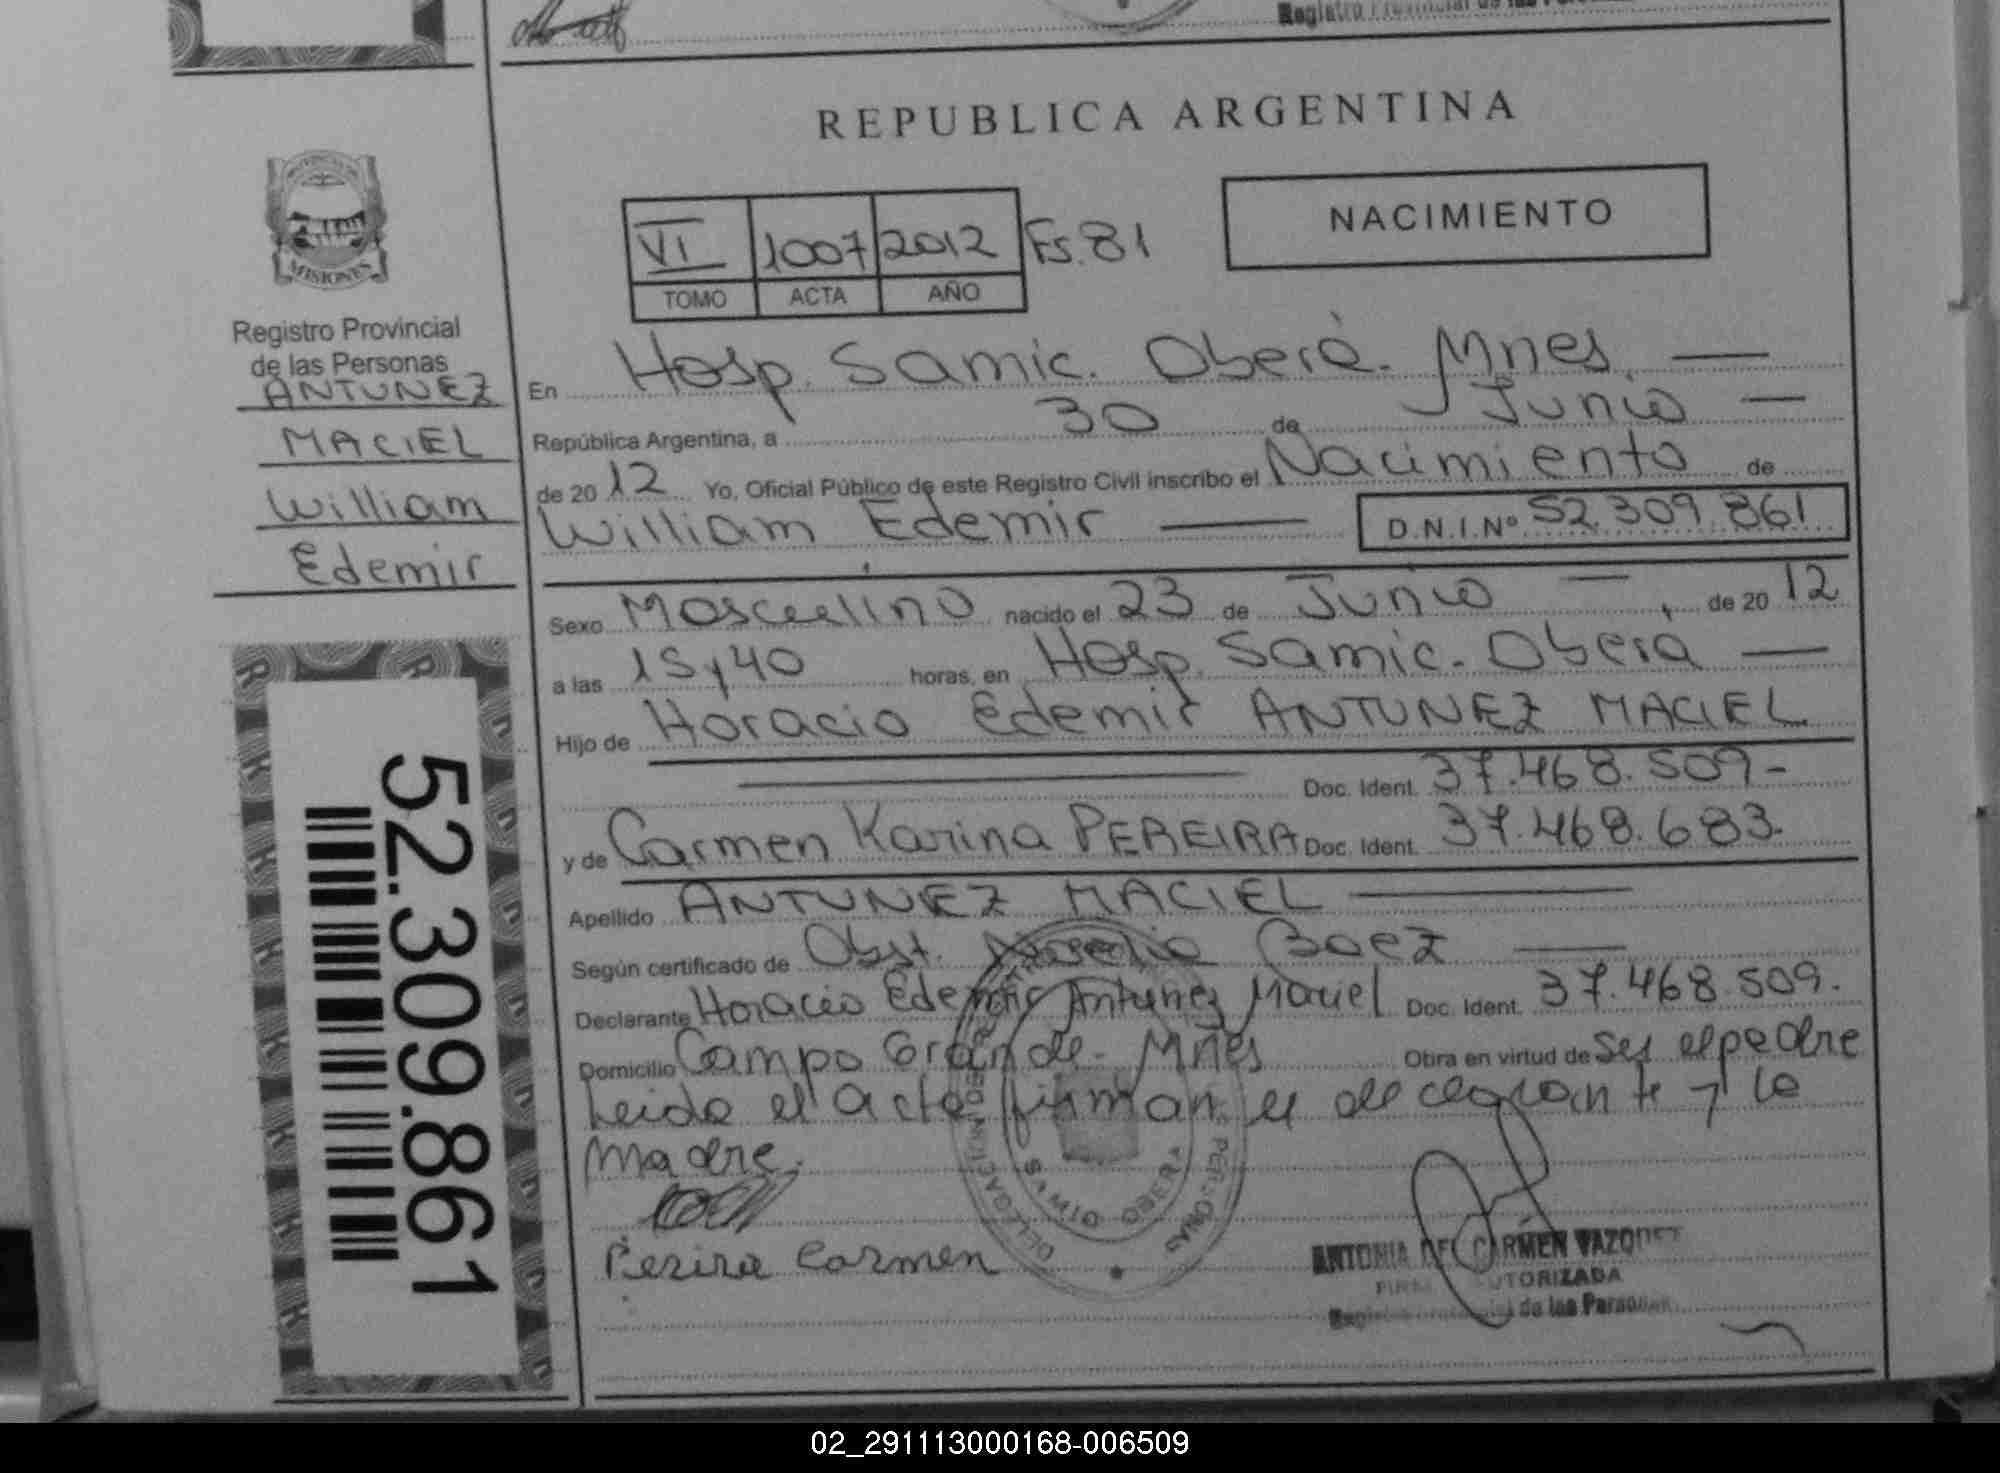 Registro Provincial de las Personas
REPUBLICA ARGENTINA
NACIMIENTO
VI 1007 2012 Fs. 81
TOMO ACTA AÑO
MISIONES
Registro Provincial
de las Personas
ANTUNEZ
MACIEL
William
Edemir
52.309.861
En Hosp. Samic. Oberá. Mnes.
República Argentina, a 30 de Junio
de 2012 Yo, Oficial Público de este Registro Civil inscribo el Nacimiento de
William Edemir D.N.I.Nº 52.309.861
Sexo Masculino nacido el 23 de Junio, de 2012
a las 15y40 horas, en Hosp. Samic. Oberá
Hijo de Horacio Edemir ANTUNEZ MACIEL
Doc. Ident. 37.468.509-
y de Carmen Karina PEREIRA Doc. Ident. 37.468.683.
Apellido ANTUNEZ MACIEL
Según certificado de Obst. Baez
Declarante Horacio Edemir Antunez Maciel Doc. Ident. 37.468.509.
Domicilio Campo Grande. Mnes Obra en virtud de ser el padre
Leida el acta firman el declarante y la
madre.
Pereira Carmen
ANTONIA DEL CARMEN VAZQUEZ
FIRMA AUTORIZADA
Registro Provincial de las Personas
02_291113000168-006509